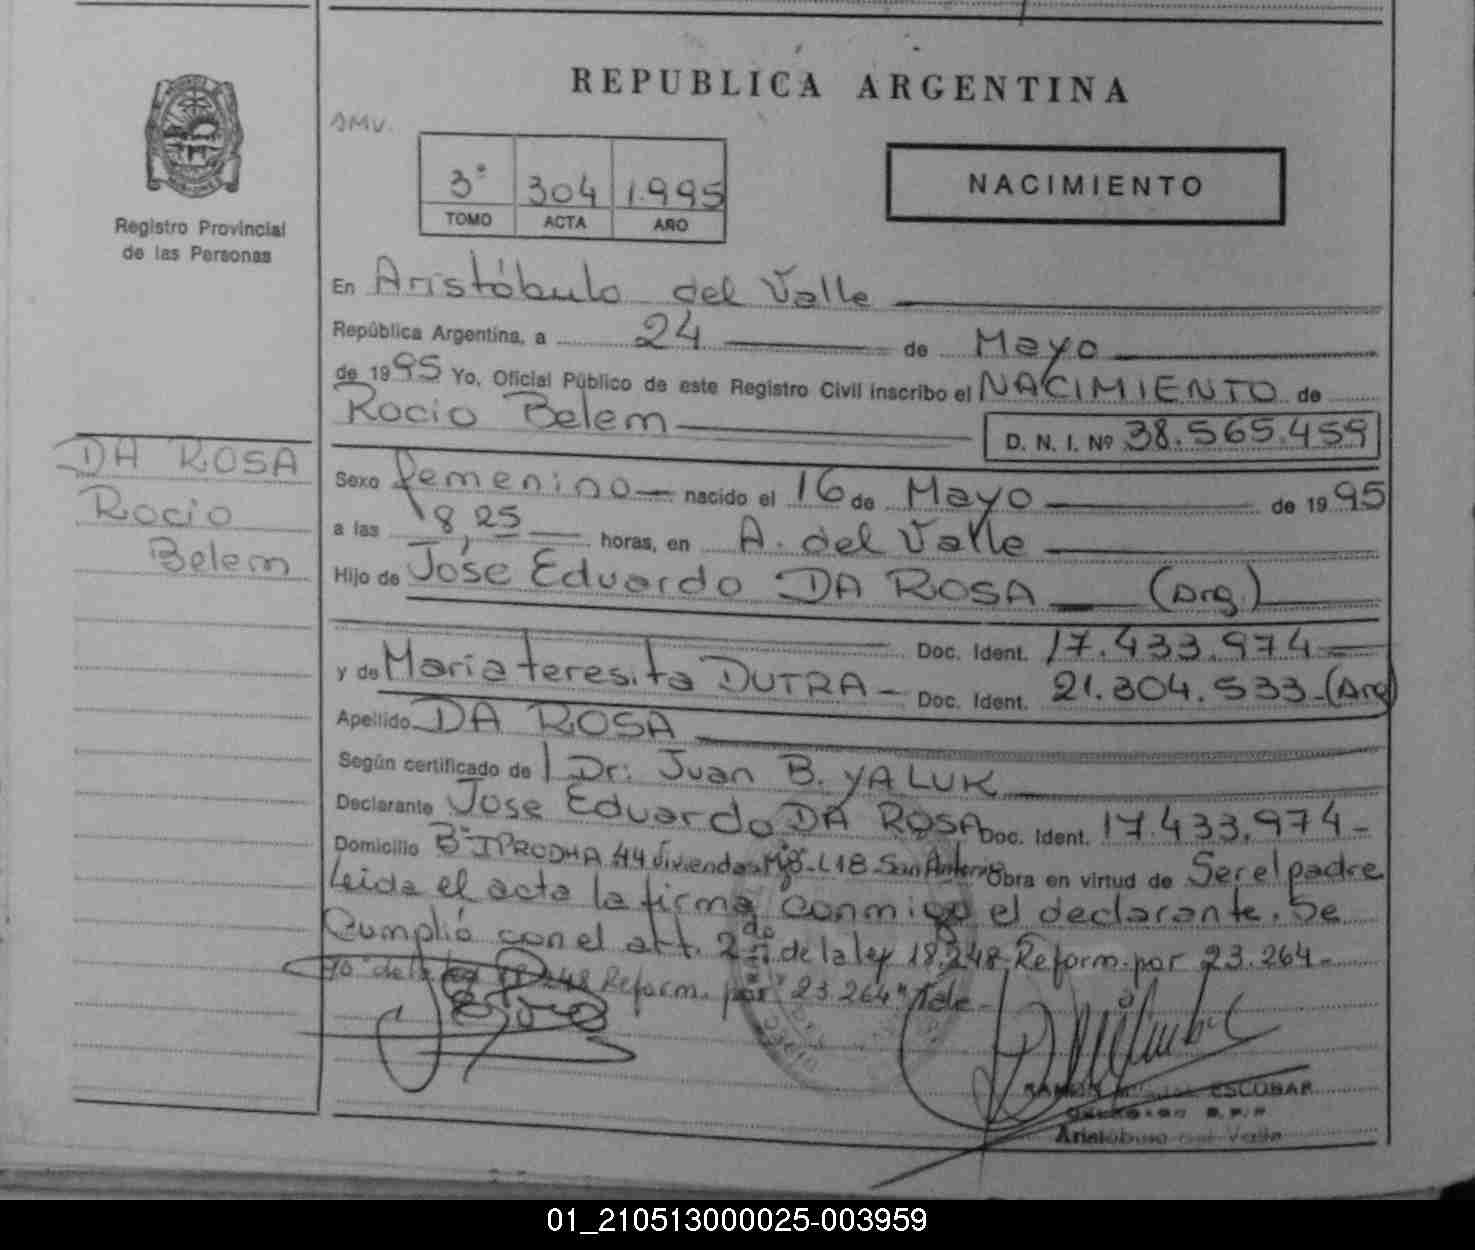 REPUBLICA ARGENTINA
AMV.
3° 304 1.995
TOMO ACTA AÑO
NACIMIENTO
Registro Provincial
de las Personas
DA ROSA
Rocio
Belem
En Aristóbulo del Valle
República Argentina, a 24 de Mayo
de 1995 Yo, Oficial Público de este Registro Civil inscribo el NACIMIENTO de
Rocio Belem D. N. I. Nº 38.565.459
Sexo femenino nacido el 16 de Mayo de 1995
a las 18,25 horas, en A. del Valle
Hijo de José Eduardo DA ROSA (Arg.)
Doc. Ident. 17.433.974
y de Maria teresita DUTRA Doc. Ident. 21.304.533 (Arg)
Apellido DA ROSA
Según certificado de Dr. Juan B. YALUK
Declarante Jose Eduardo DA ROSA Doc. Ident. 17.433.974
Domicilio B° IPRODHA 44 viviendas L18 San Antonio Obra en virtud de Ser el padre
Leida el acta la firma conmigo el declarante. Se
Cumplió con el art. 2do de la ley 18.248 Reform. por 23.264
18.248 Reform. por 23.264" Vale
ESCOBAR
Aristóbulo del Valle
01_210513000025-003959